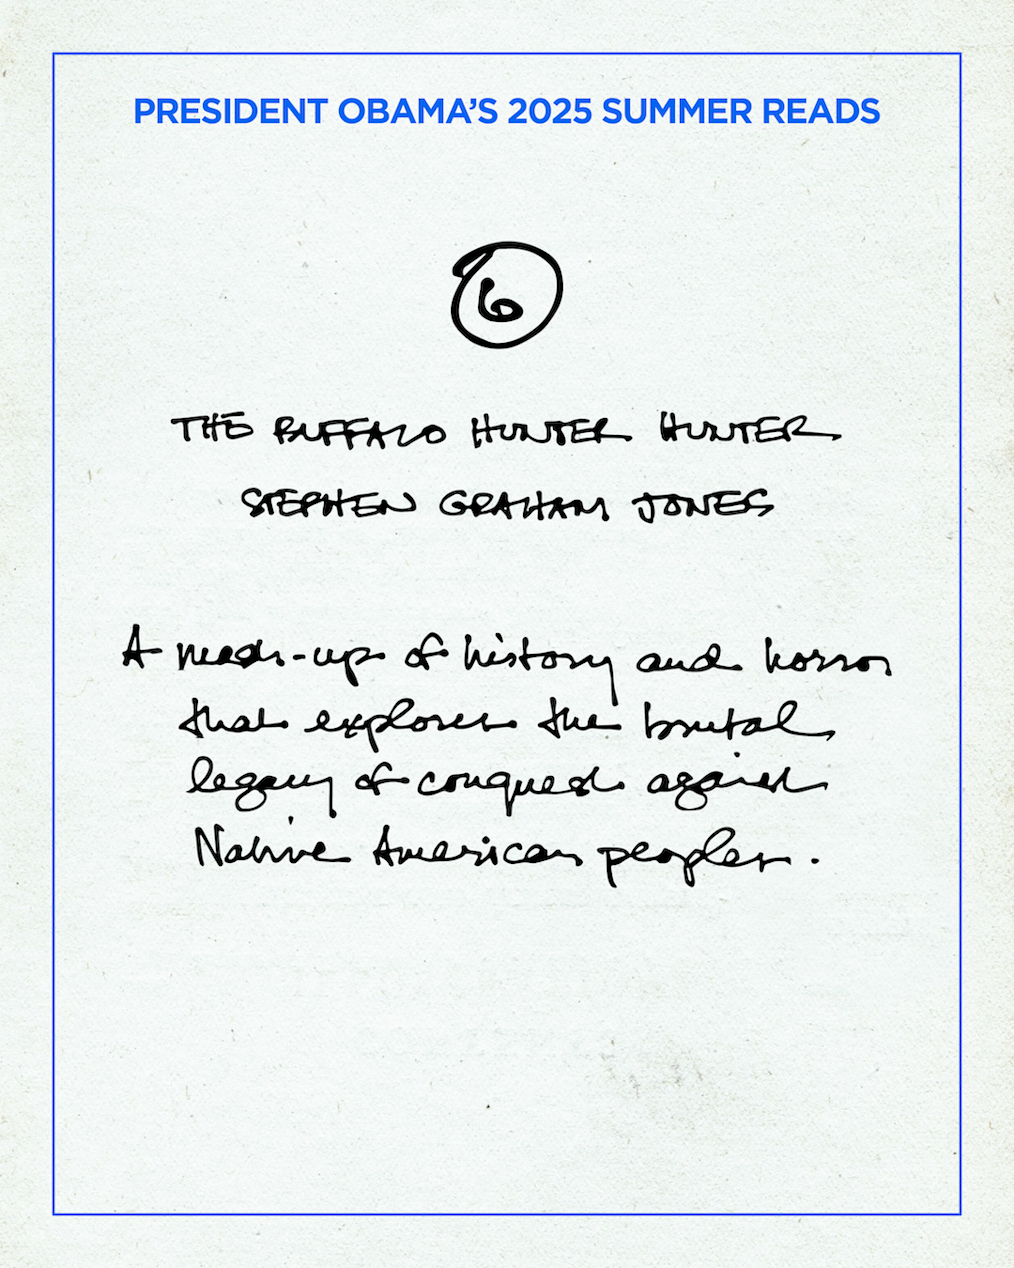 PRESIDENT OBAMA'S 2025 SUMMER READS
6
THE BUFFALO HUNTER HUNTER
STEPHEN GRAHAM JONES
A mash-up of history and horror
that explores the brutal
legacy of conquest against
Native American peoples.